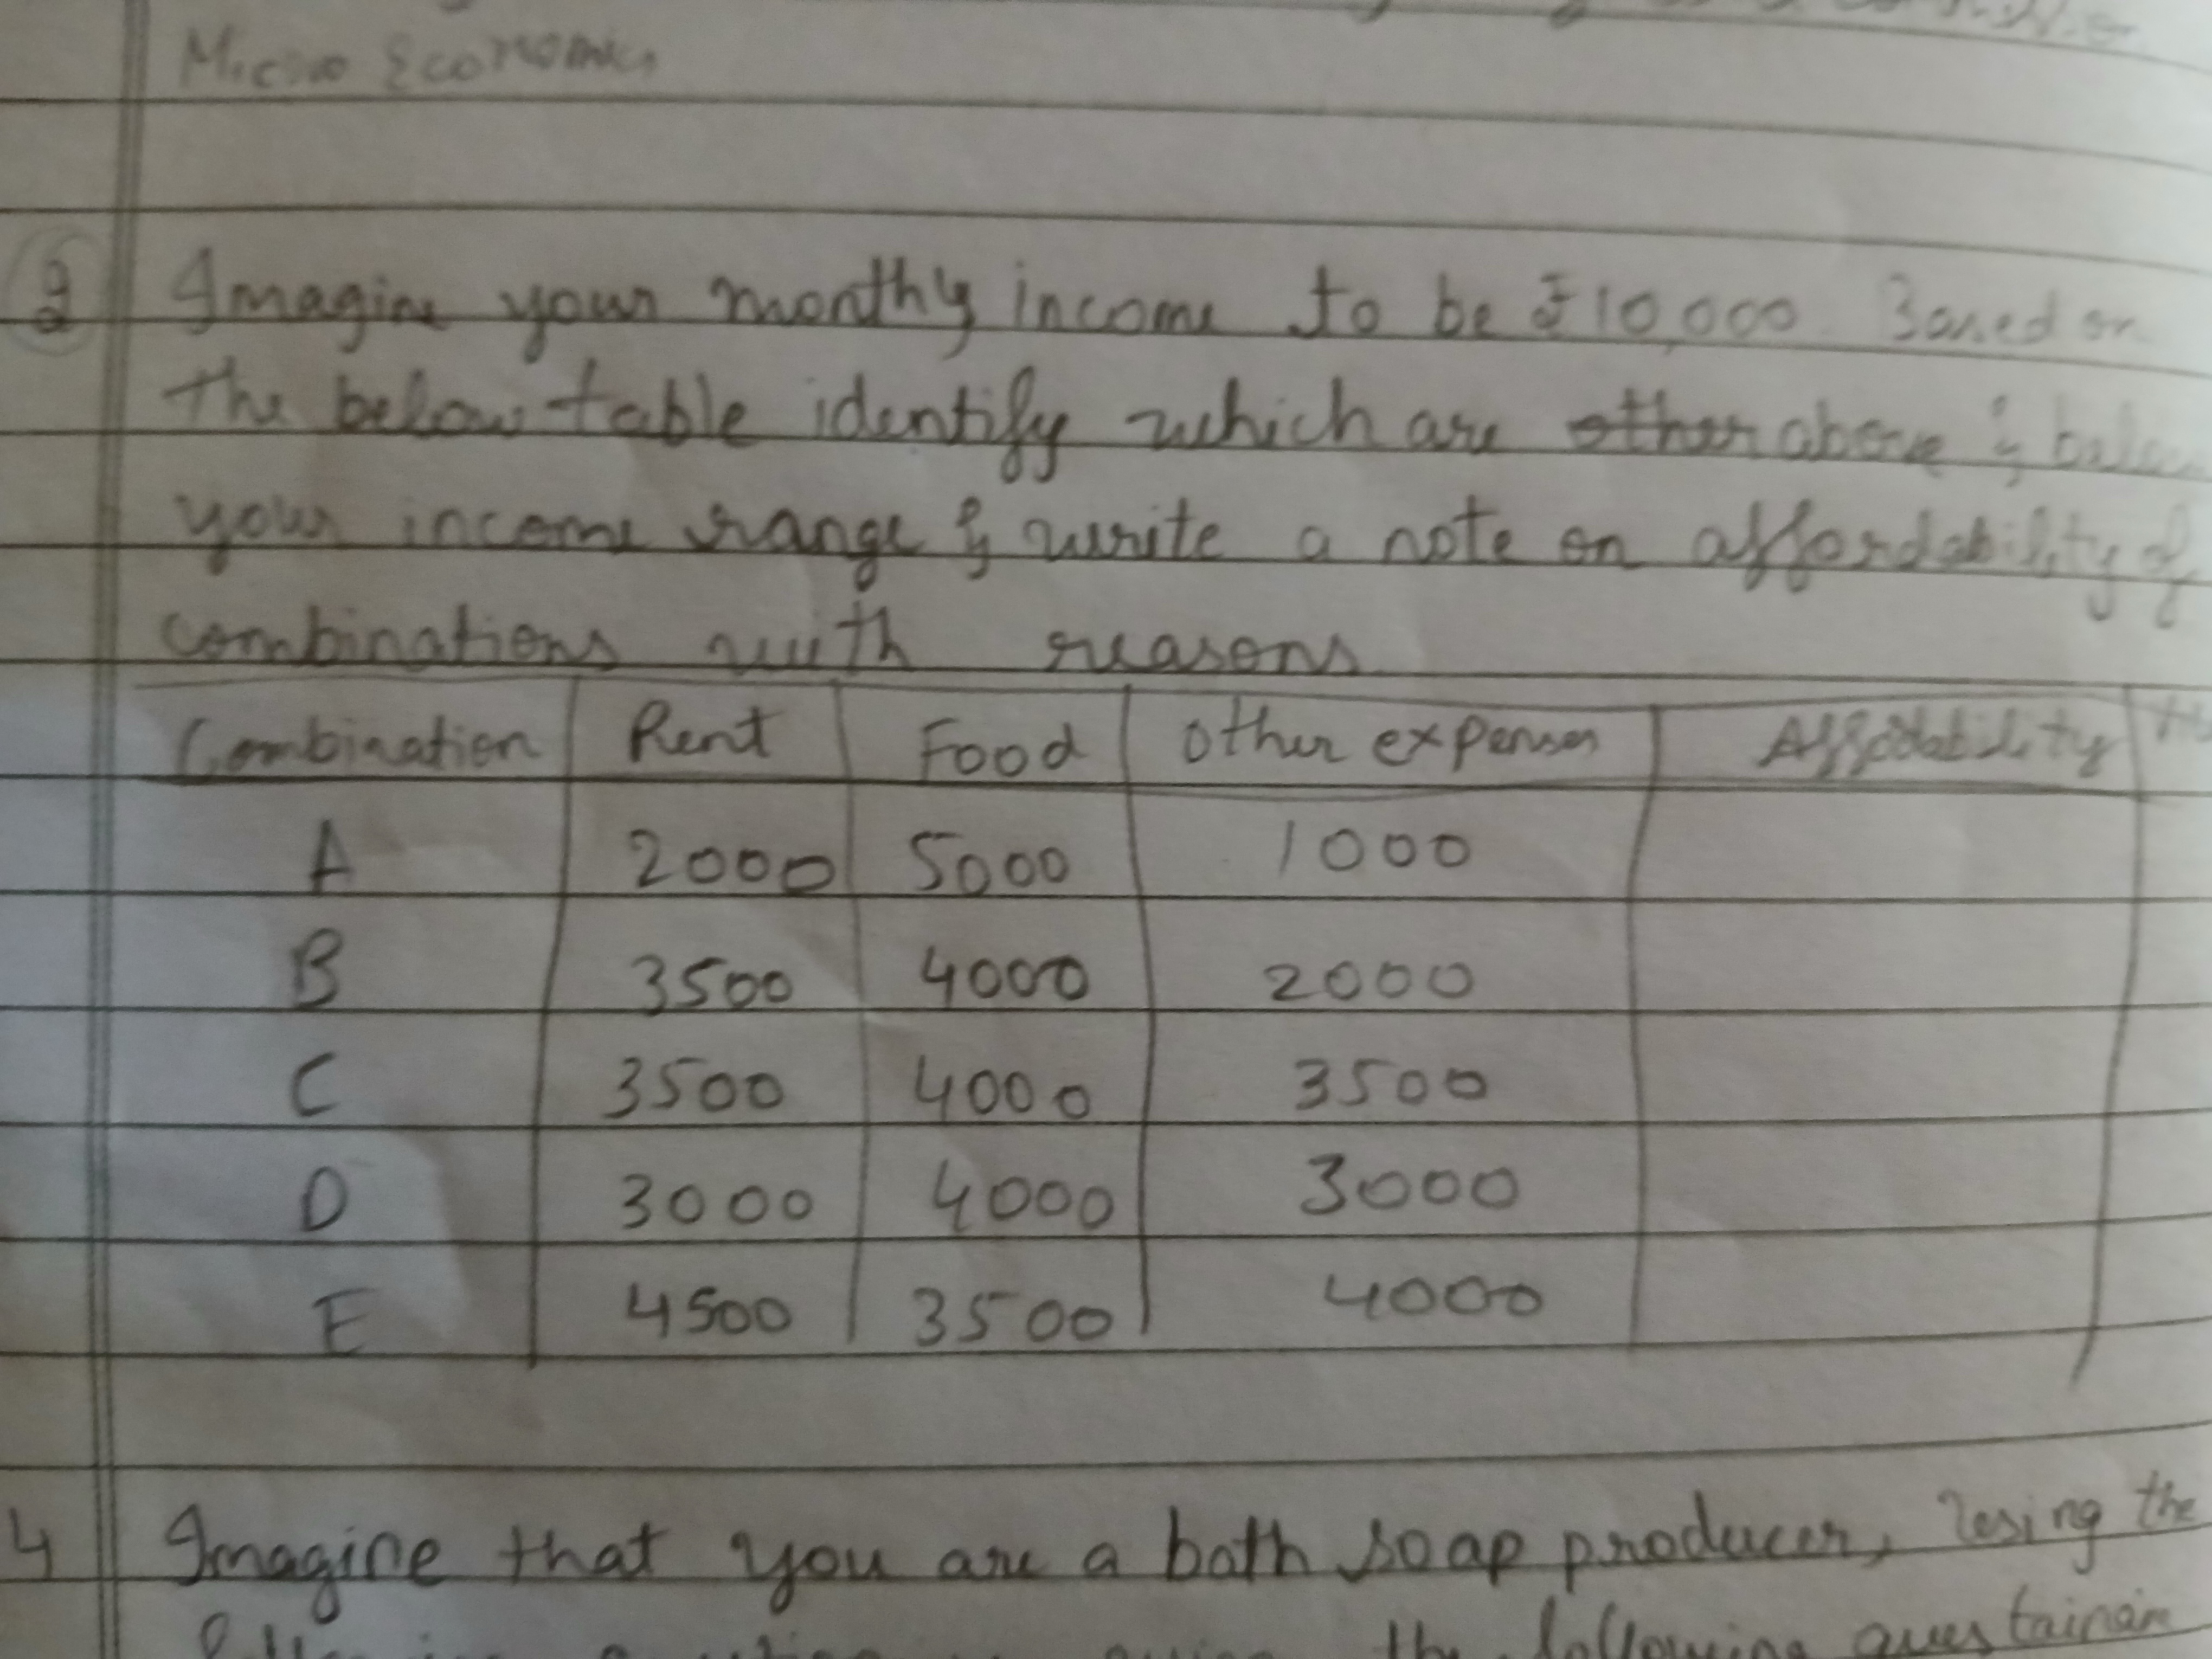 Micro Economics
3 Imagine your monthly income to be ₹10,000. Based on
the below table identify which are other above & below
your income range & write a note on affordability of
combinations with reasons
Combination Rent Food Other expenses Affordability
A 2000 5000 1000
B 3500 4000 2000
C 3500 4000 3500
D 3000 4000 3000
E 4500 3500 4000
4 Imagine that you are a bath soap producer, using the
the following